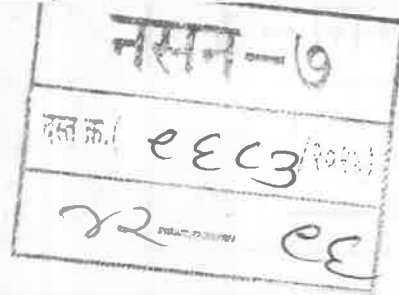 नसन-७
दस्त क्र.( ९६८३/२०२५)
४२ ९६